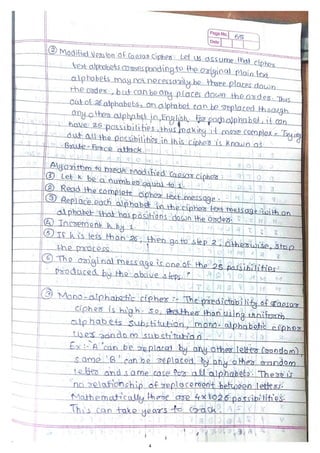 Page No.
Date
② Modified Version of Caesar Cipher: Let us assume that cipher
text alphabets corresponding to the original plain text
alphabets may not necessarily be three places down
the order, but can be any places down the order. Thus
out of 26 alphabets, an alphabet can be replaced through
any other alphabet in English, for each alphabet, it can
have 25 possibilities, thus making it more complex. Trying
out all the possibilities in this cipher is known as
Brute-Force attack.
Algorithm to break modified Caesar cipher:
① Let k be a number equal to 1.
② Read the complete cipher text message.
③ Replace each alphabet in the cipher text message with an
alphabet that has positions down the order.
④ Increment k by 1
⑤ If k is less than 26, then go to step 2, otherwise, stop
the process.
⑥ The original message is one of the 25 possibilities
produced by the above steps.
③ Mono-alphabetic cipher:- The predictability of Caesar
cipher is high. So, rather than using uniform
alphabets substitution, mono-alphabetic cipher
uses random substitution.
Ex:- 'A' can be replaced by any other letter (random),
same 'B' can be replaced by any other random
letter and same case for all alphabets. There is
no relationship of replacement between letters.
Mathematically there are 4x1026 possibilities.
This can take years to crack.
4